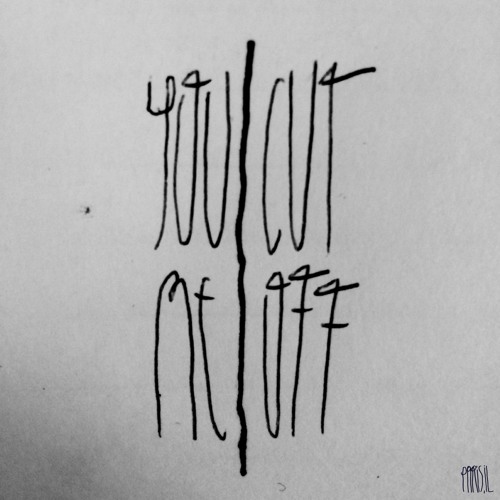 YOU CUT
ME OFF
PARIS.IL